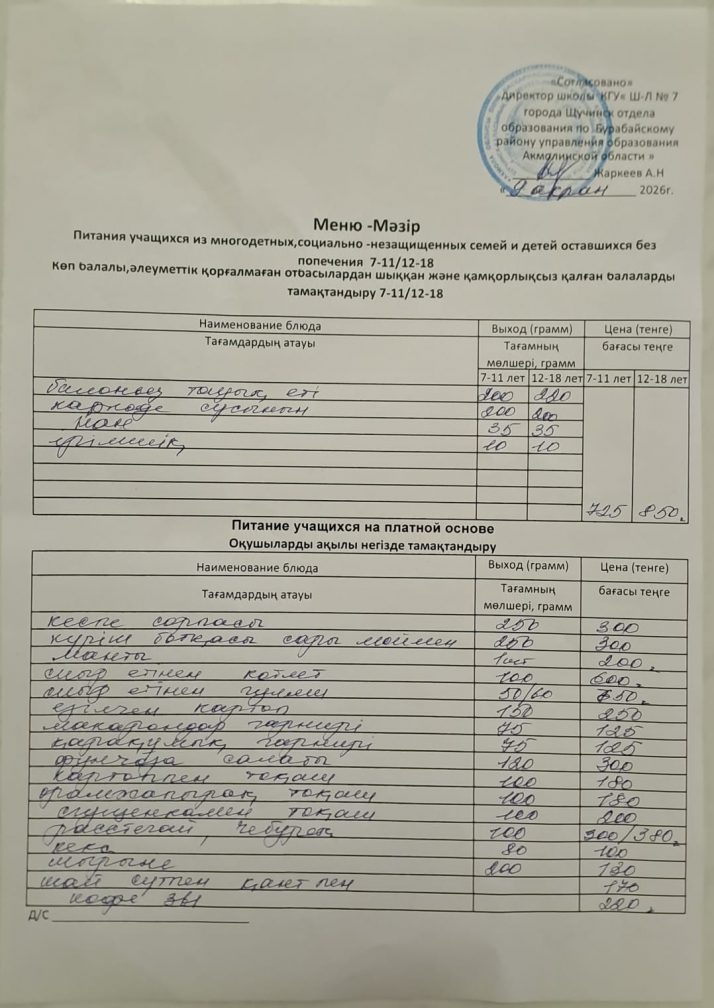 «Согласовано»
Директор школы КГУ« Ш-Л № 7
города Щучинск отдела
образования по Бурабайскому
району управления образования
Акмолинской области »
Жаркеев А.Н
« 2026г.
Меню -Мәзір
Питания учащихся из многодетных,социально -незащищенных семей и детей оставшихся без
попечения 7-11/12-18
Көп балалы,әлеуметтік қорғалмаған отбасылардан шыққан және қамқорлықсыз қалған балаларды
тамақтандыру 7-11/12-18
Наименование блюда Выход (грамм) Цена (тенге)
Тағамдардың атауы Тағамның мөлшері, грамм бағасы теңге
7-11 лет 12-18 лет 7-11 лет 12-18 лет
тауық еті 200 220
каркаде сусынын 200 200
нан 35 35
ірімшік 10 10
725 850.
Питание учащихся на платной основе
Оқушыларды ақылы негізде тамақтандыру
Наименование блюда Выход (грамм) Цена (тенге)
Тағамдардың атауы Тағамның мөлшері, грамм бағасы теңге
кеспе сорпасы 250 300
күріш ботқасы сары маймен 250 300
Манты 1шт 200.
сиыр етінен котлет 100 600.
сиыр етінен гуляш 50/60 650.
езілген картоп 150 250
макарондар гарнирі 75 125
қарақұмық гарнирі 75 125
фунчоза салаты 120 300
картоппен тоқаш 100 180
орамжапырақ тоқаш 100 180
сгущенкамен тоқаш 100 200
расстегай, чебурек 100 300/380.
кекс 80 100
шырыне 200 130
шай сүтпен қантпен 170
кофе 3в1 220.
Д/С